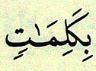 بِكَلِمَٰتٍ